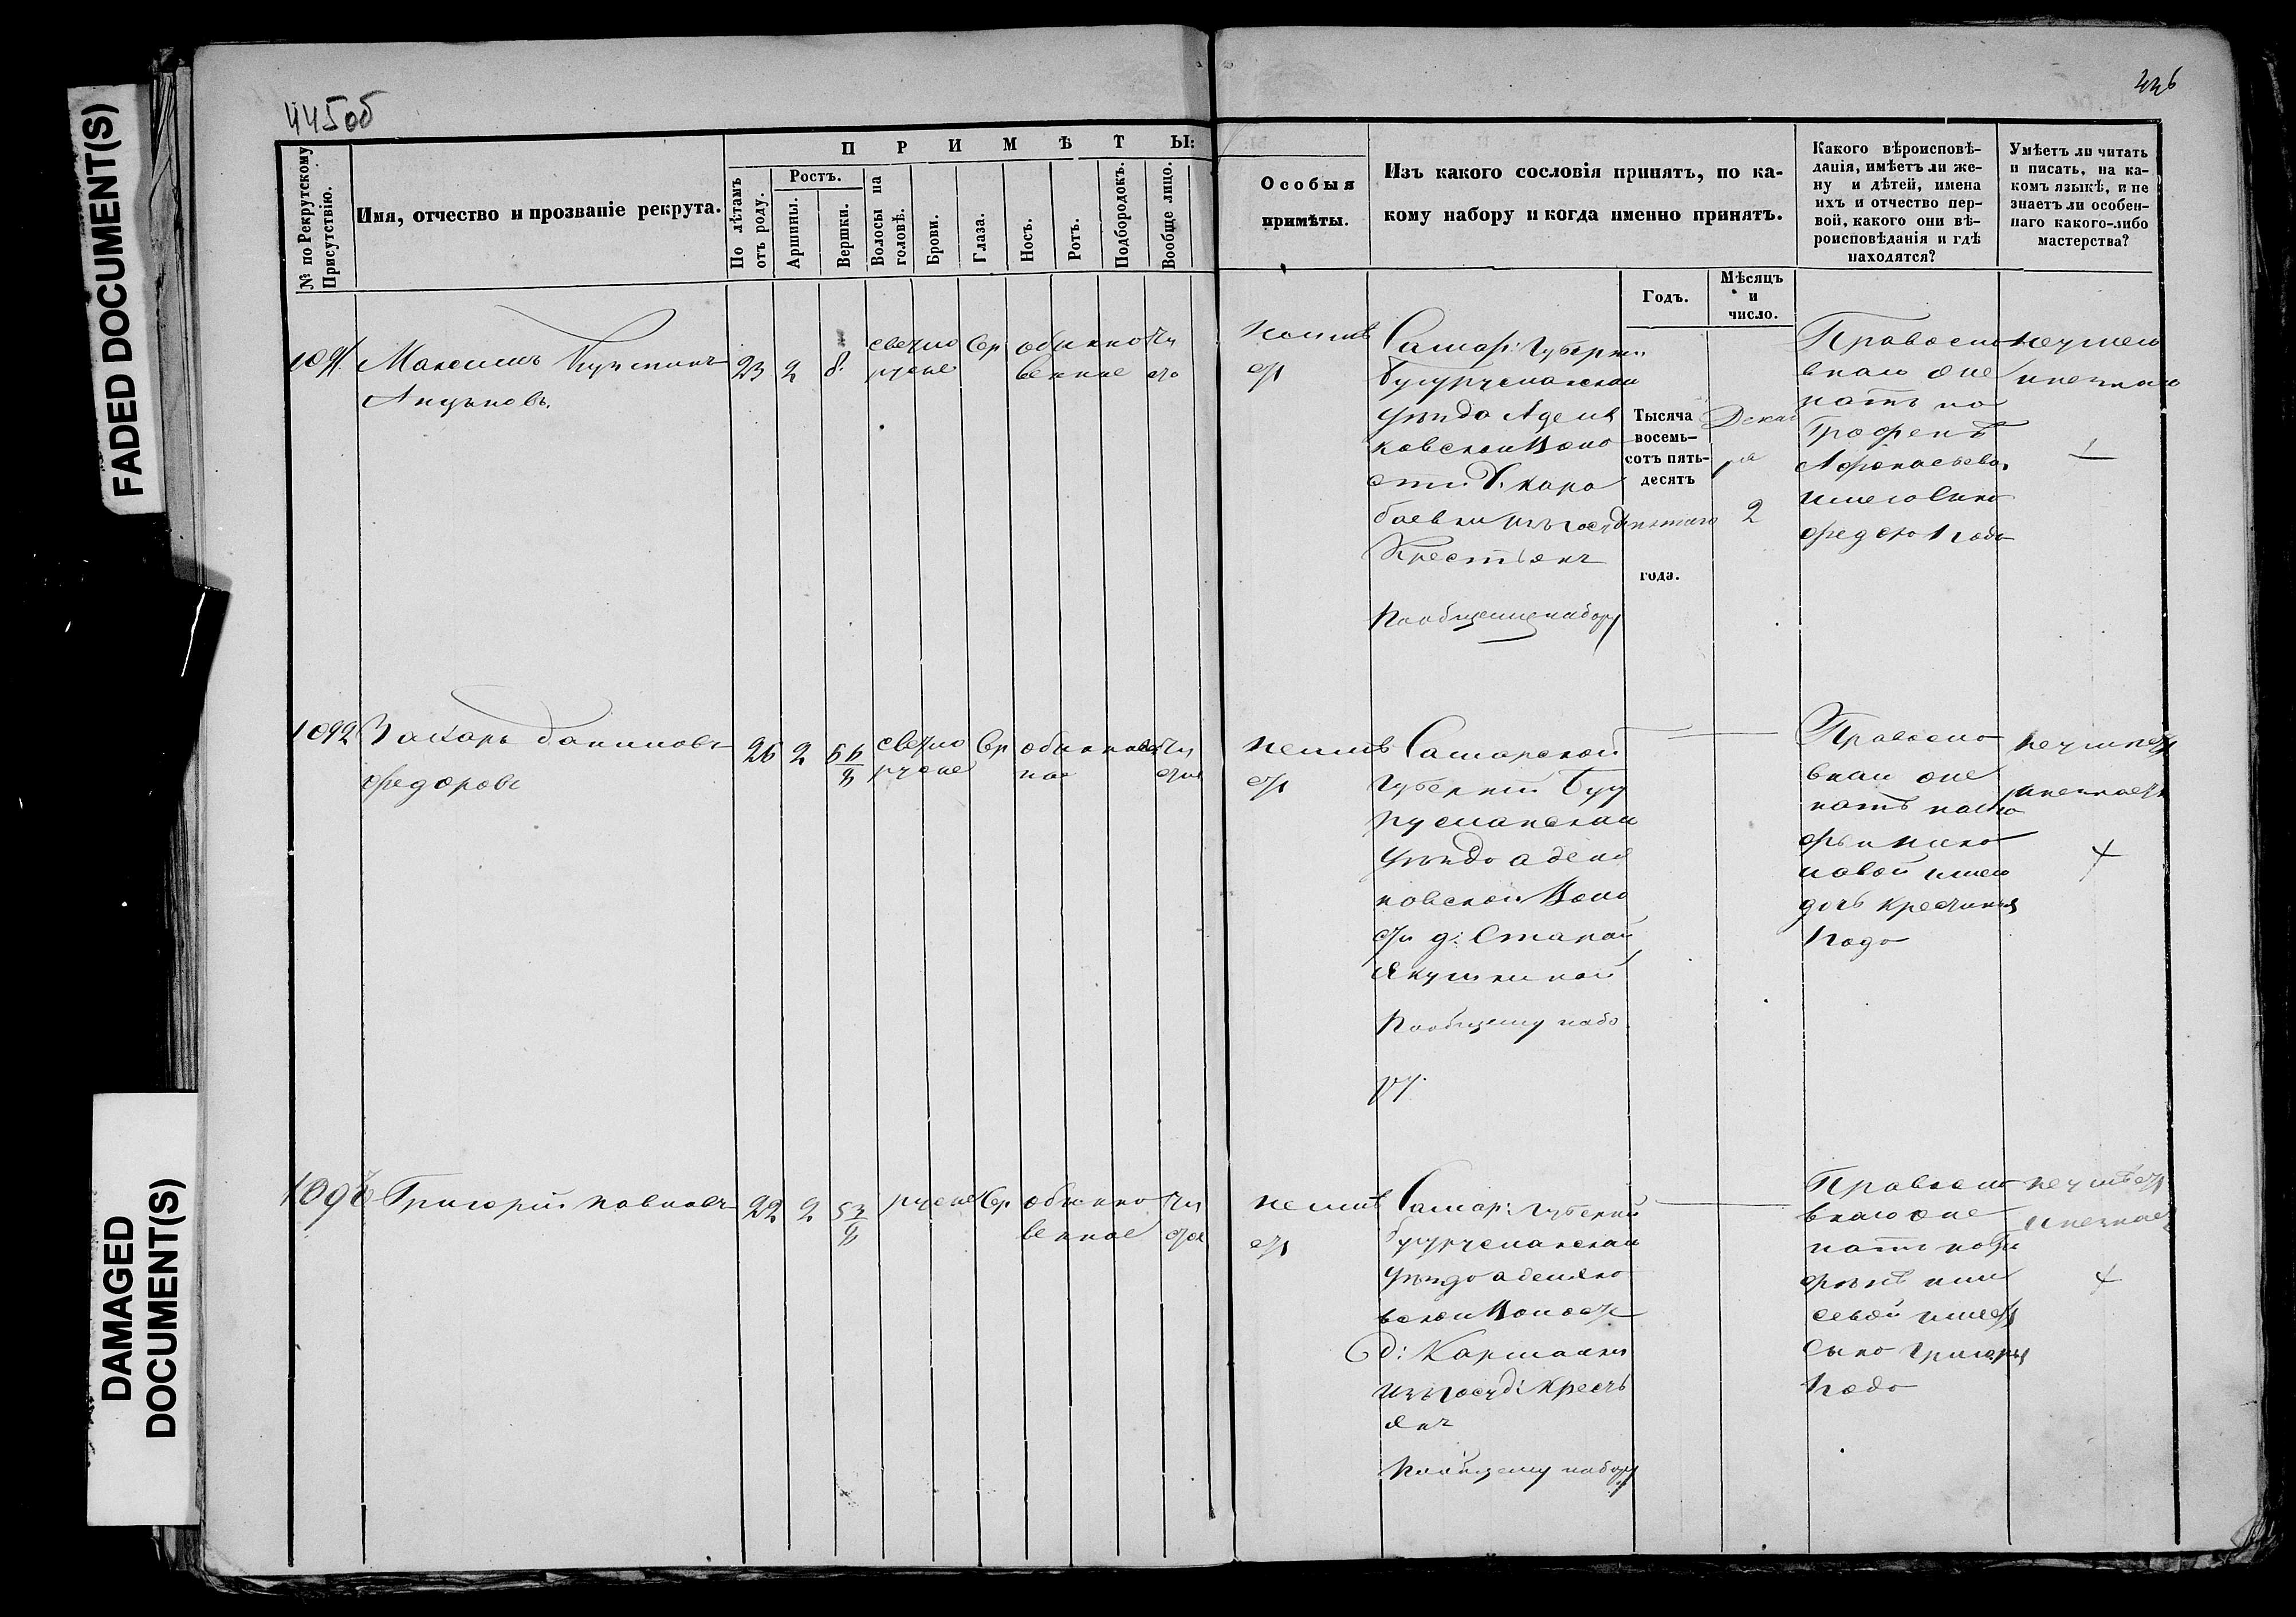 FADED DOCUMENT(S)
DAMAGED
DOCUMENT(S)
445об
446
№ по Рекрутскому
Присутствію.
Имя, отчество и прозваніе рекрута.
ПРИМѢТЫ:
По лѣтамъ
отъ роду.
Ростъ.
Аршины.
Вершки.
Волосы на
головѣ.
Брови.
Глаза.
Носъ.
Ротъ.
Подбородокъ.
Вообще лицо.
Особыя
примѣты.
Изъ какого сословія принятъ, по ка-
кому набору и когда именно принятъ.
Годъ.
Мѣсяцъ
и
число.
Какого вѣроисповѣ-
данія, имѣетъ ли же-
ну и дѣтей, имена
ихъ и отчество пер-
вой, какого они вѣ-
роисповѣданія и гдѣ
находятся?
Умѣетъ ли читать
и писать, на ка-
комъ языкѣ, и не
знаетъ ли особен-
наго какого-либо
мастерства?
1091
Максимъ
23
2
8
свѣтло
русые
Сер
обыкно
венное
чи
сто
Самар: Губерни
Бугурусланскаи
уѣзда Аделя
ковскои Воло
сти Д. Кара
баевки изъ госуд
Крестьянъ
По общему набору
Тысяча
восемь-
сотъ пять-
десятъ
пятаго
года.
Декаб
ря
2
Правосла
внаго же
натъ на
Графенѣ
Афонасьева
имеет сына
Федора 1 года
1092
Захаръ Даниловъ
Федоровъ
26
2
6 6/8
свѣтло
русые
Сер
обыкновен
ное
чи
стое
неимѣ
ет
Самарской
Губерніи Бугу
русланскаи
уѣзда аделя
ковскои Воло
сти д: Старой
Якушкиной
По общему набо
ру.
Правосла
внаи же
натъ
имеет
дочь
1 года
неумѣет
инезнает
Григорій Павловъ
22
2
5 3/8
русые
Сер
обыкно
венное
чи
стое
неимѣ
ет
Самар: Губерніи
бугурусланскаи
уѣзда аделяко
вскои Волости
д: Кармалки
изъ Госуд: Кресть
янъ
По общему набору
Правосла
внаго же
натъ на
имеет
сына Григорья
1 года
неумѣет
инезнает